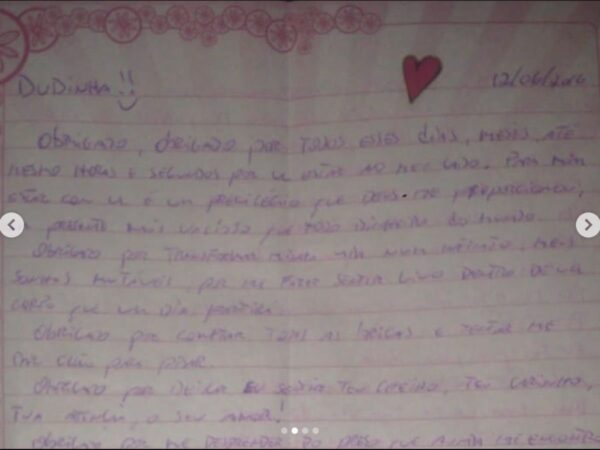 DUDINHA!!
12/06/2016
OBRIGADO, OBRIGADO POR TODOS ESSES DIAS, MESES, ATÉ
MESMO HORAS E SEGUNDOS POR U ESTAR AO MEU LADO. PARA MIM
ESTAR COM U É UM PRIVILÉGIO QUE DEUS ME PROPORCIONOU,
PRESENTE MAIS VALIOSO QUE TODO DINHEIRO DO MUNDO.
OBRIGADO POR TRANSFORMAR MINHA VIDA NUM INFINITO, MEUS
POR ME FAZER SENTIR VIVO DENTRO DE UM
CORPO QUE UM DIA
OBRIGADO POR COMPRAR TODAS AS BRIGAS E TENTAR ME
DAR CHÃO PARA PISAR.
OBRIGADO POR DEIXAR EU SENTIR TEU CHEIRO, TEU CARINHO,
TUA O SEU AMOR!
OBRIGADO POR ME DESPRENDER DO QUE